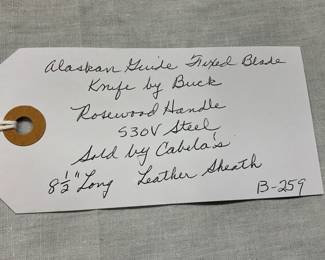 Alaskan Guide Fixed Blade
Knife by Buck
Rosewood Handle
S30V Steel
Sold by Cabela's
8 1/2" Long Leather Sheath
B-259